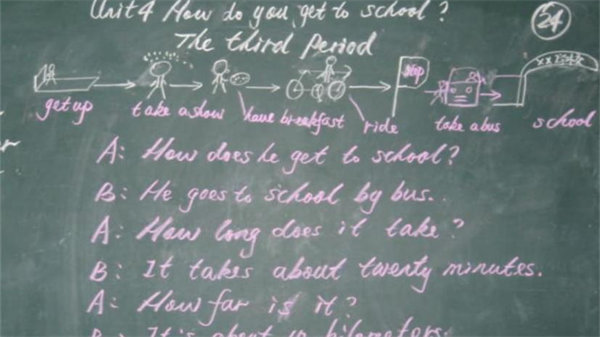 Unit 4 How do you get to school?
24
The third Period
stop
get up take a show have breakfast ride take a bus school
A: How does he get to school?
B: He goes to school by bus.
A: How long does it take?
B: It takes about twenty minutes.
A: How far is it?
B: It's about 10 kilometers.